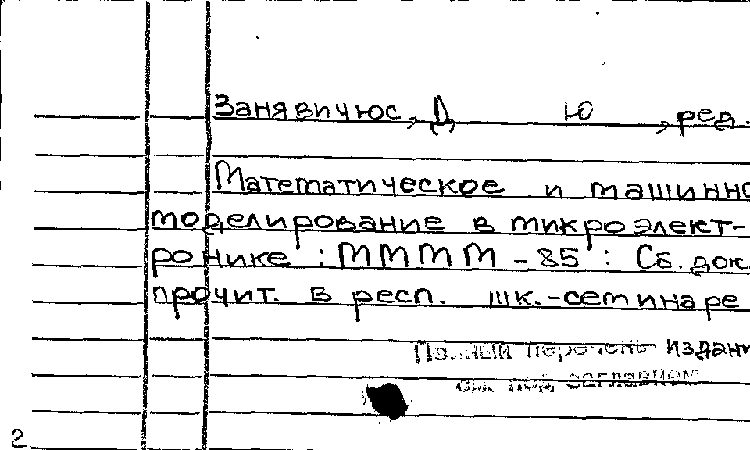 Занявичюс, Д Ю , ред.
Математическое и машинно
моделирование в микроэлект-
ронике : ММММ - 85 : Сб. док
прочит. в респ. шк.-семинаре
Полный перечень издани
см. под заглавием
2